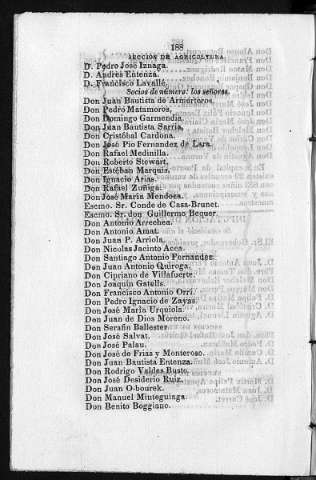 188
SECCION DE AGRICULTURA
D. Pedro José Iznaga.
D. Andres Entenza.
D. Francisco Lavallé.
Socios de número: los señores.
Don Juan Bautista de Armenteros.
Don Pedro Matamoros,
Don Domingo Garmendia.
Don Juan Bautista Sarria.
Don Cristóbal Cardona.
Don José Pio Fernandez de Lara.
Don Rafael Medinilla.
Don Roberto Stewart.
Don Estéban Marquis,
Don Ignacio Arias.
Don Rafael Zuñiga.
Don José Maria Mendoza.
Escmo. Sr. Conde de Casa-Brunet.
Escmo. Sr. don Guillermo Bequer.
Don Antonio Arrechea.
Don Antonio Amat.
Don Juan P. Arriola.
Don Nicolas Jacinto Acea.
Don Santiago Antonio Fernandez.
Don Juan Antonio Quiroga.
Don Cipriano de Villafuerte.
Don Joaquin Gatells.
Don Francisco Antonio Orri.
Don Pedro Ignacio de Zayas.
Don José Maria Urquiola.
Don Juan de Dios Moreno.
Don Serafin Ballester.
Don José Salvat.
Don José Palau.
Don José de Frias y Monteroso.
Don Juan Bautista Entenza.
Don Rodrigo Valdes Busto.
Don José Desiderio Ruiz.
Don Juan O-bourek.
Don Manuel Minteguiaga.
Don Benito Boggiano.